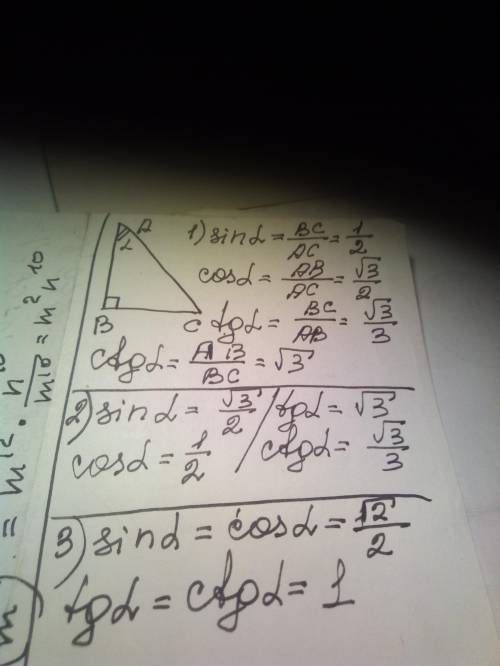 A
α
B C
1) sinα = BC/AC = 1/2
cosα = AB/AC = √3/2
tgα = BC/AB = √3/3
ctgα = AB/BC = √3
2) sinα = √3/2 / tgα = √3
cosα = 1/2 / ctgα = √3/3
3) sinα = cosα = √2/2
tgα = ctgα = 1